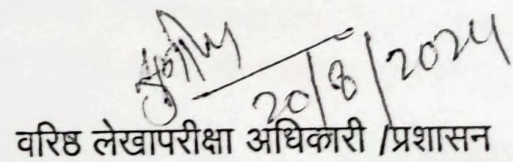 20/8/2024
वरिष्ठ लेखापरीक्षा अधिकारी /प्रशासन